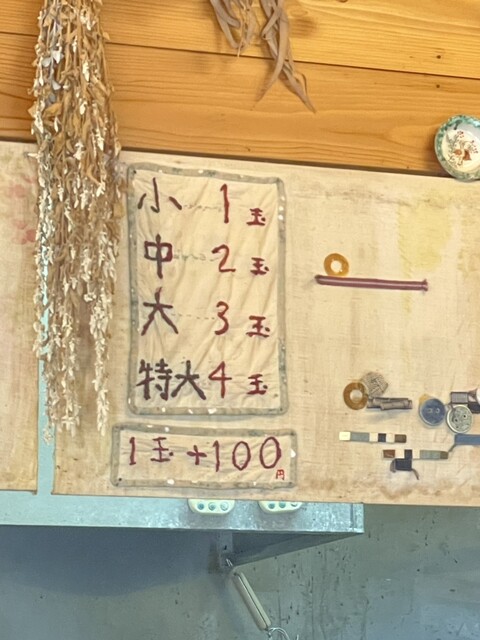 小 1玉
中 2玉
大 3玉
特大 4玉
1玉+100円